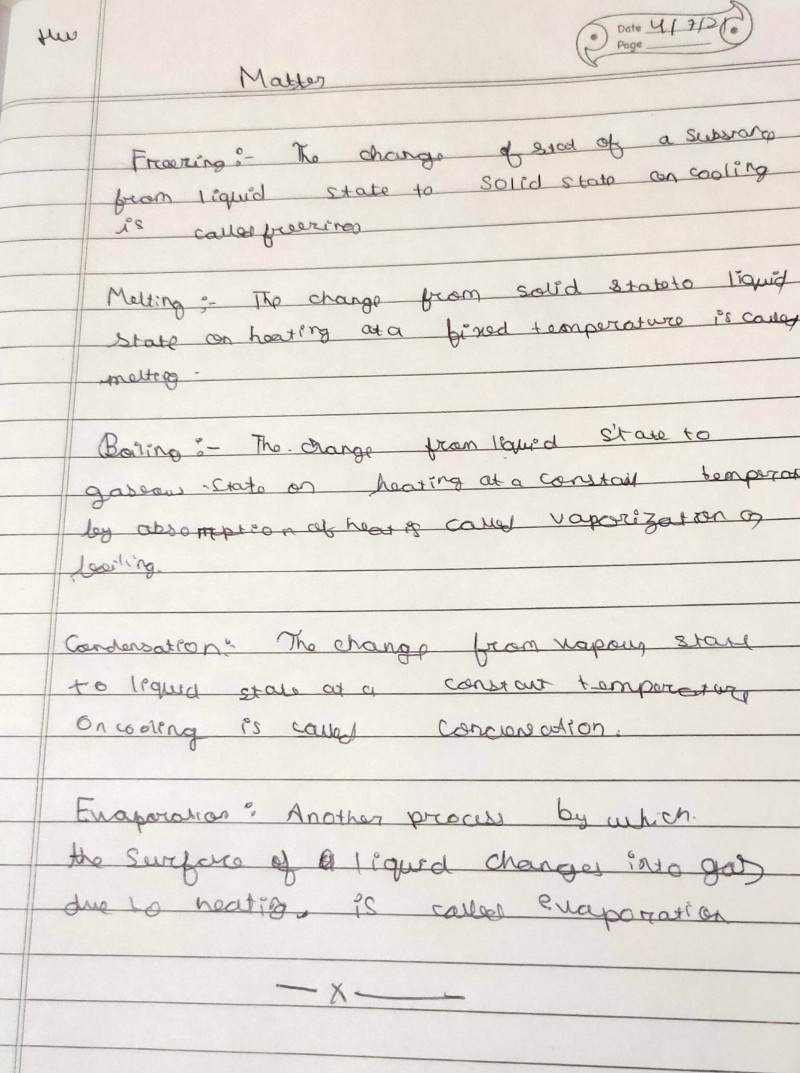 HW
Date 4/7/21
Page
Matter
Freezing :- The change of of a substance
from liquid state to solid state on cooling
is called freezing
Melting :- The change from solid state to liquid
state on heating at a fixed temperature is called
melting.
Boiling :- The change from liquid state to
gaseous state on heating at a constant
by absorption of heat is called vaporization or
boiling.
Condensation :- The change from vapour state
to liquid state at a constant temperature
on cooling is called
Evaporation : Another process by which
the surface of a liquid changes into gas
due to heating, is called evaporation
— x —